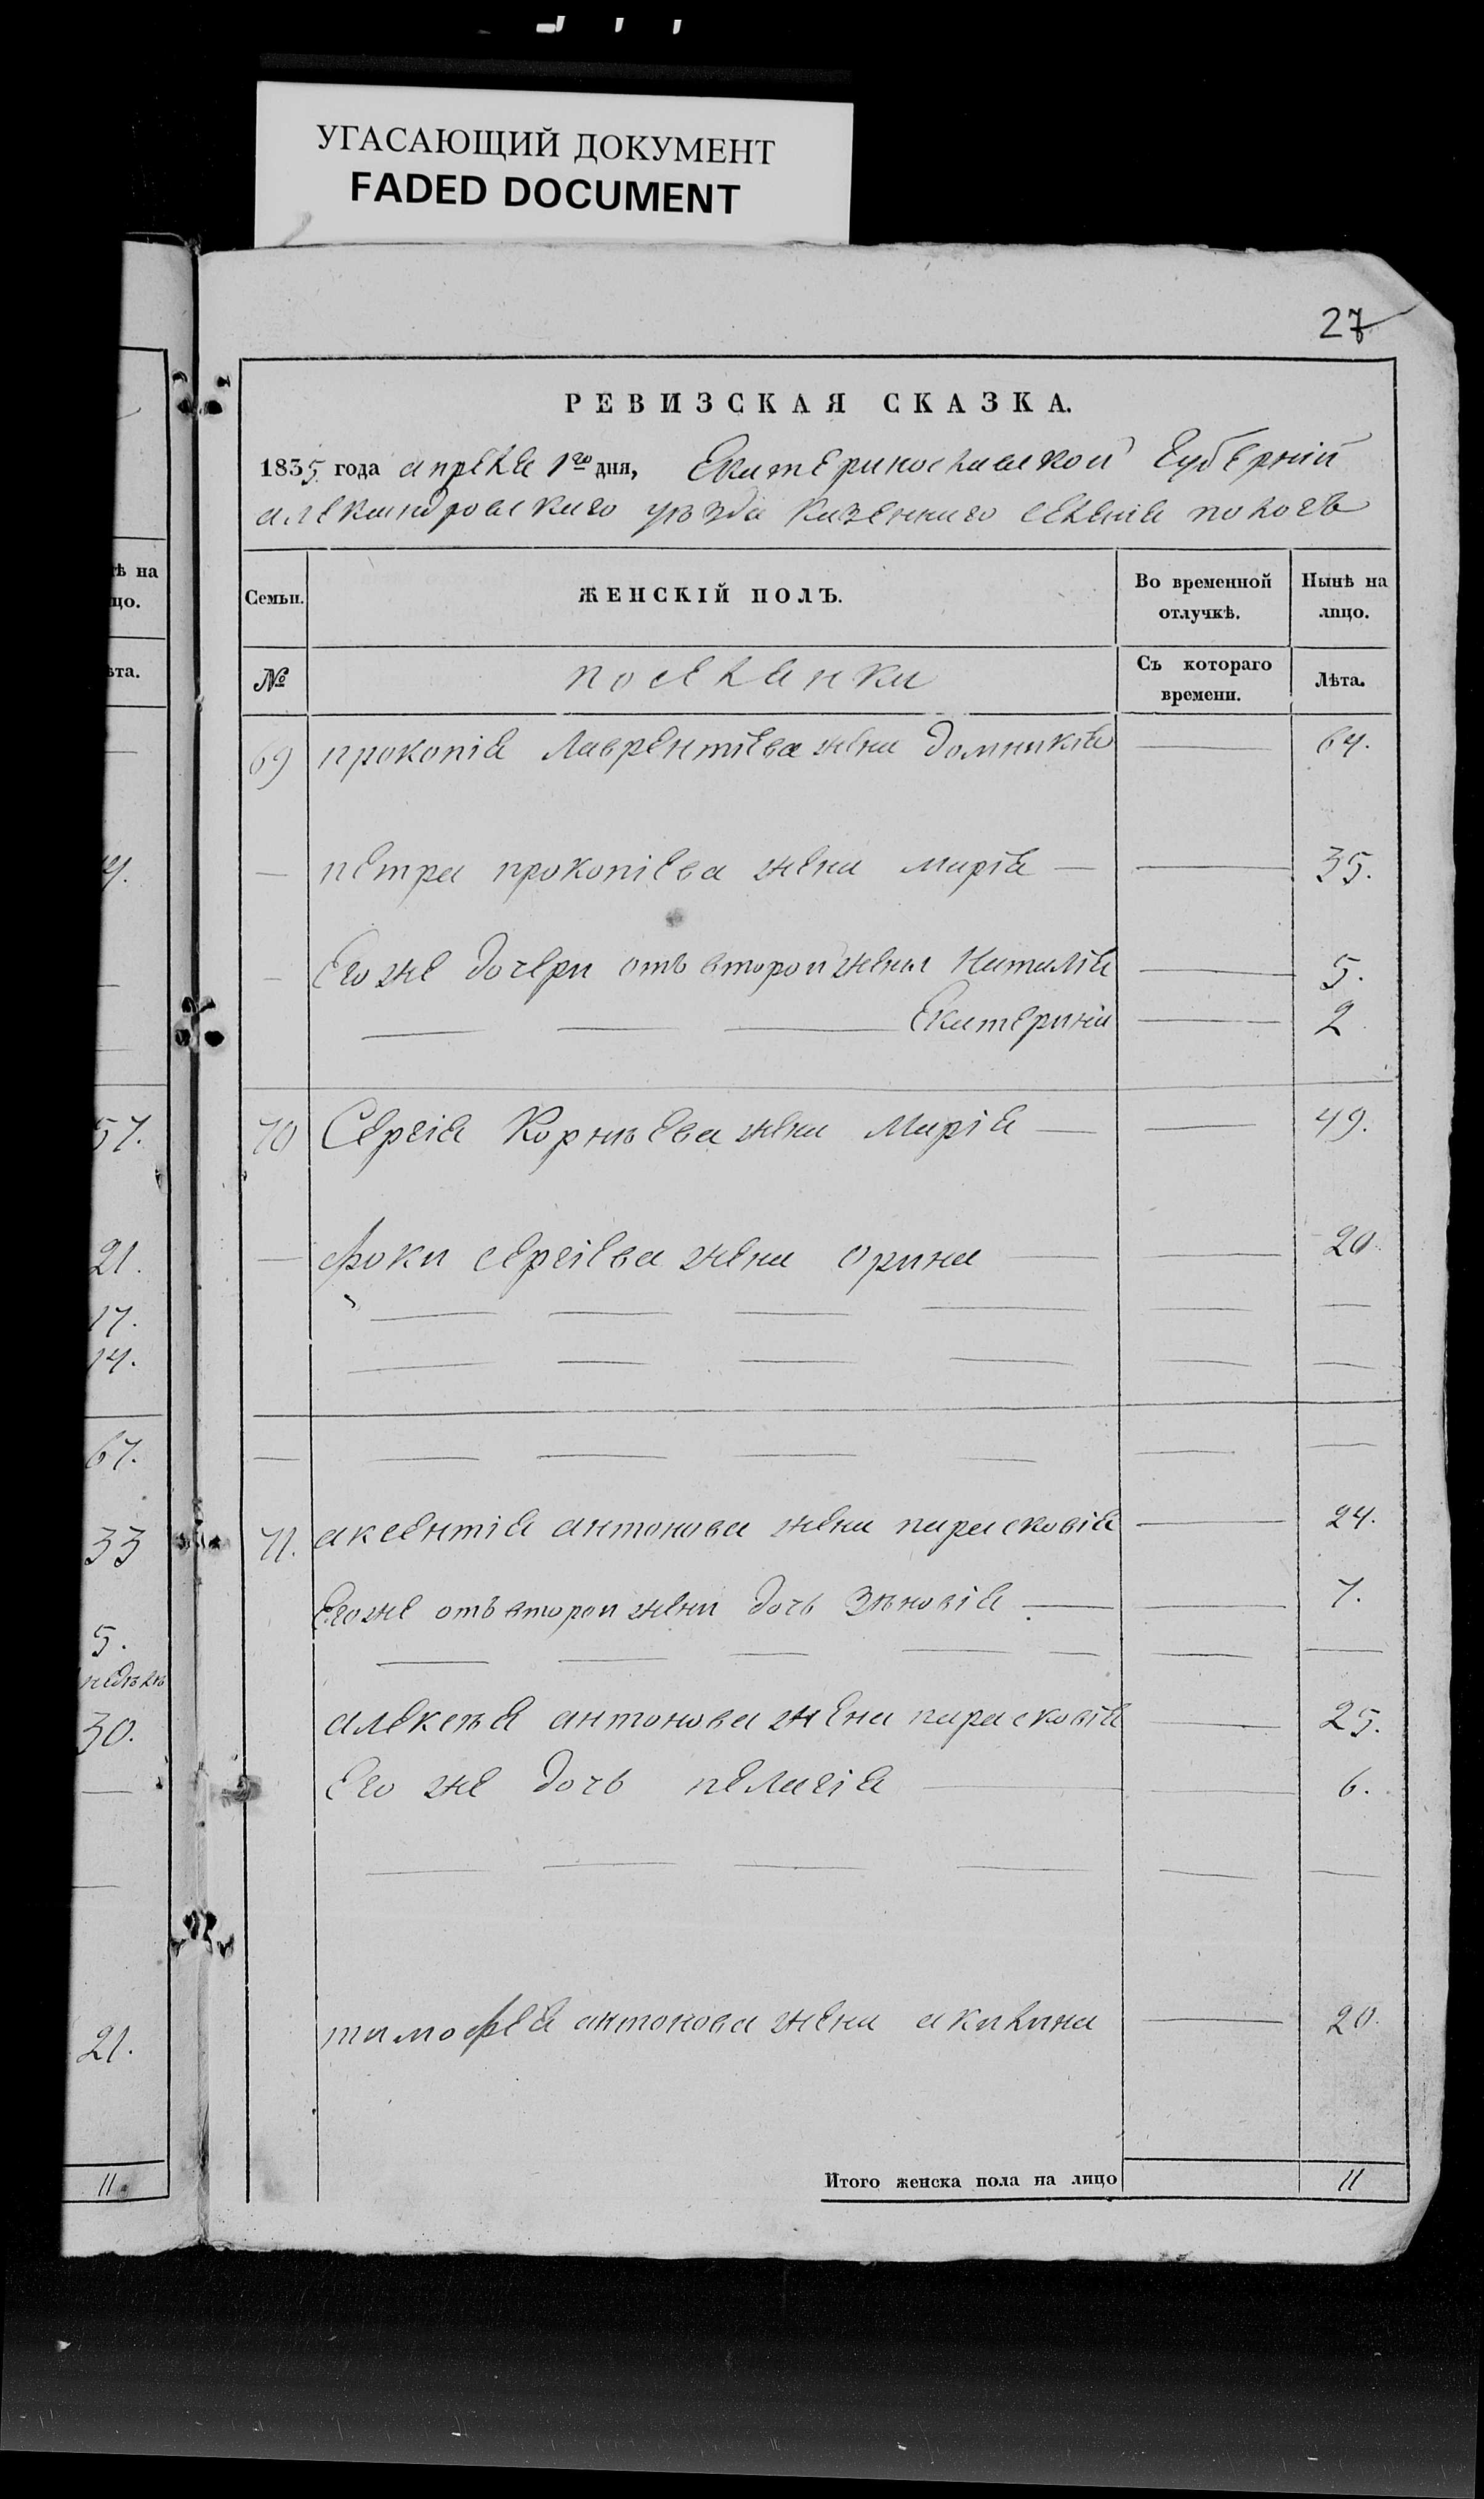 УГАСАЮЩИЙ ДОКУМЕНТ
FADED DOCUMENT
27
РЕВИЗСКАЯ СКАЗКА.
1835 года апреля 1го дня, Екатеринославской Губернии
александровскаго уѣзда казеннаго селения пологъ
ѣ на
цо.
ѣта.
Семьи.
ЖЕНСКІЙ ПОЛЪ.
Во временной отлучкѣ.
Нынѣ на лицо.
№
поселянки
Съ котораго времени.
Лѣта.
69 прокопія Лаврентіева жена домникія 64.
петра прокопіева жена марія 35.
Его же дочери отъ второй жены Наталія 5.
Екатерина 2
70 Сергія Корнѣева жена Марія 49.
фоки сергіева жена орина 20.
71. аксентія антонова жена парасковія 24.
Егоже отъ второй жени дочь Зѣновія 7.
алексѣя антонова жена парасковія 25.
Его же дочь пелагія 6.
тимофея антонова жена акилина 20.
Итого женска пола на лицо 11
57.
21.
17.
14.
67.
33
5.
недѣль
30.
21.
11